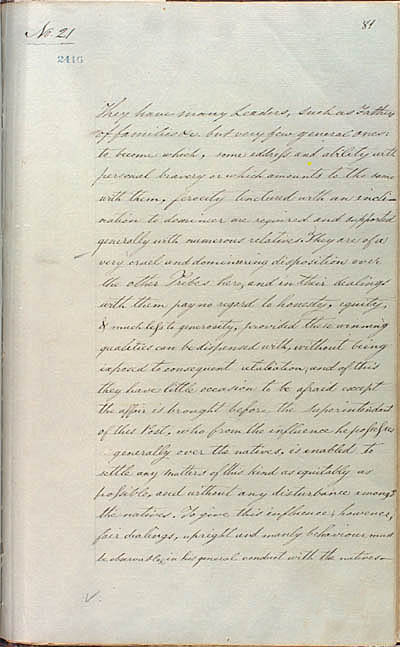 No. 21
81
2416
They have many Leaders, such as Fathers
of families &c. but very few general ones:
to become which, some address and ability with
personal bravery or which amounts to the same
with them, ferocity tinctured with an incli-
nation to domineer are required and supported
generally with numerous relatives. They are of a
very cruel and domineering disposition over
the other Tribes here, and in their dealings
with them pay no regard to honesty, equity,
& much less to generosity, provided these winning
qualities can be dispensed with, without being
exposed to consequent retaliation, and of this
they have little occasion to be afraid except
the affair is brought before the Superintendent
of this Post, who from the influence he possesses
generally over the natives, is enabled to
settle any matters of this kind as equitably as
possible, and without any disturbance amongst
the natives. To give this influence, however,
fair dealings, upright and manly behaviour must
be observable in his general conduct with the natives